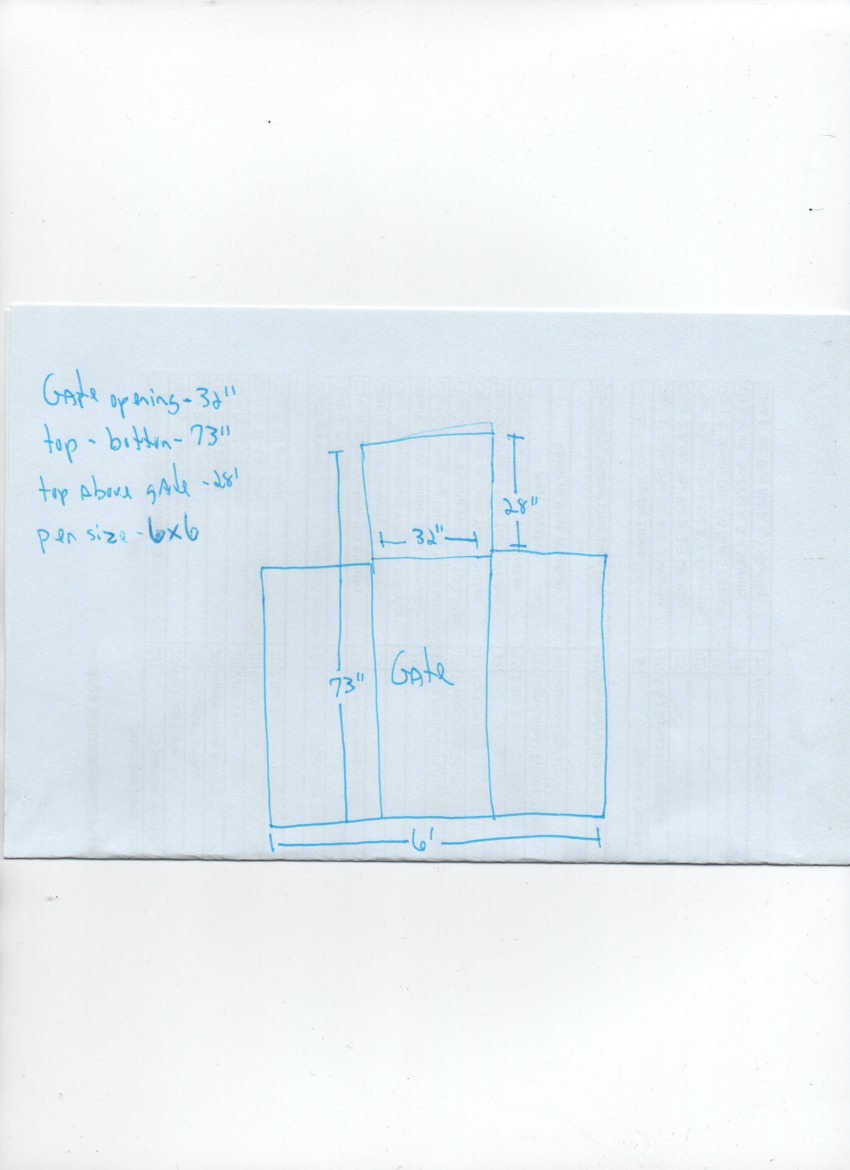 Gate opening - 32"
top - bottom - 73"
top above gate - 28'
pen size - 6x6
28"
32"
73"
Gate
6'